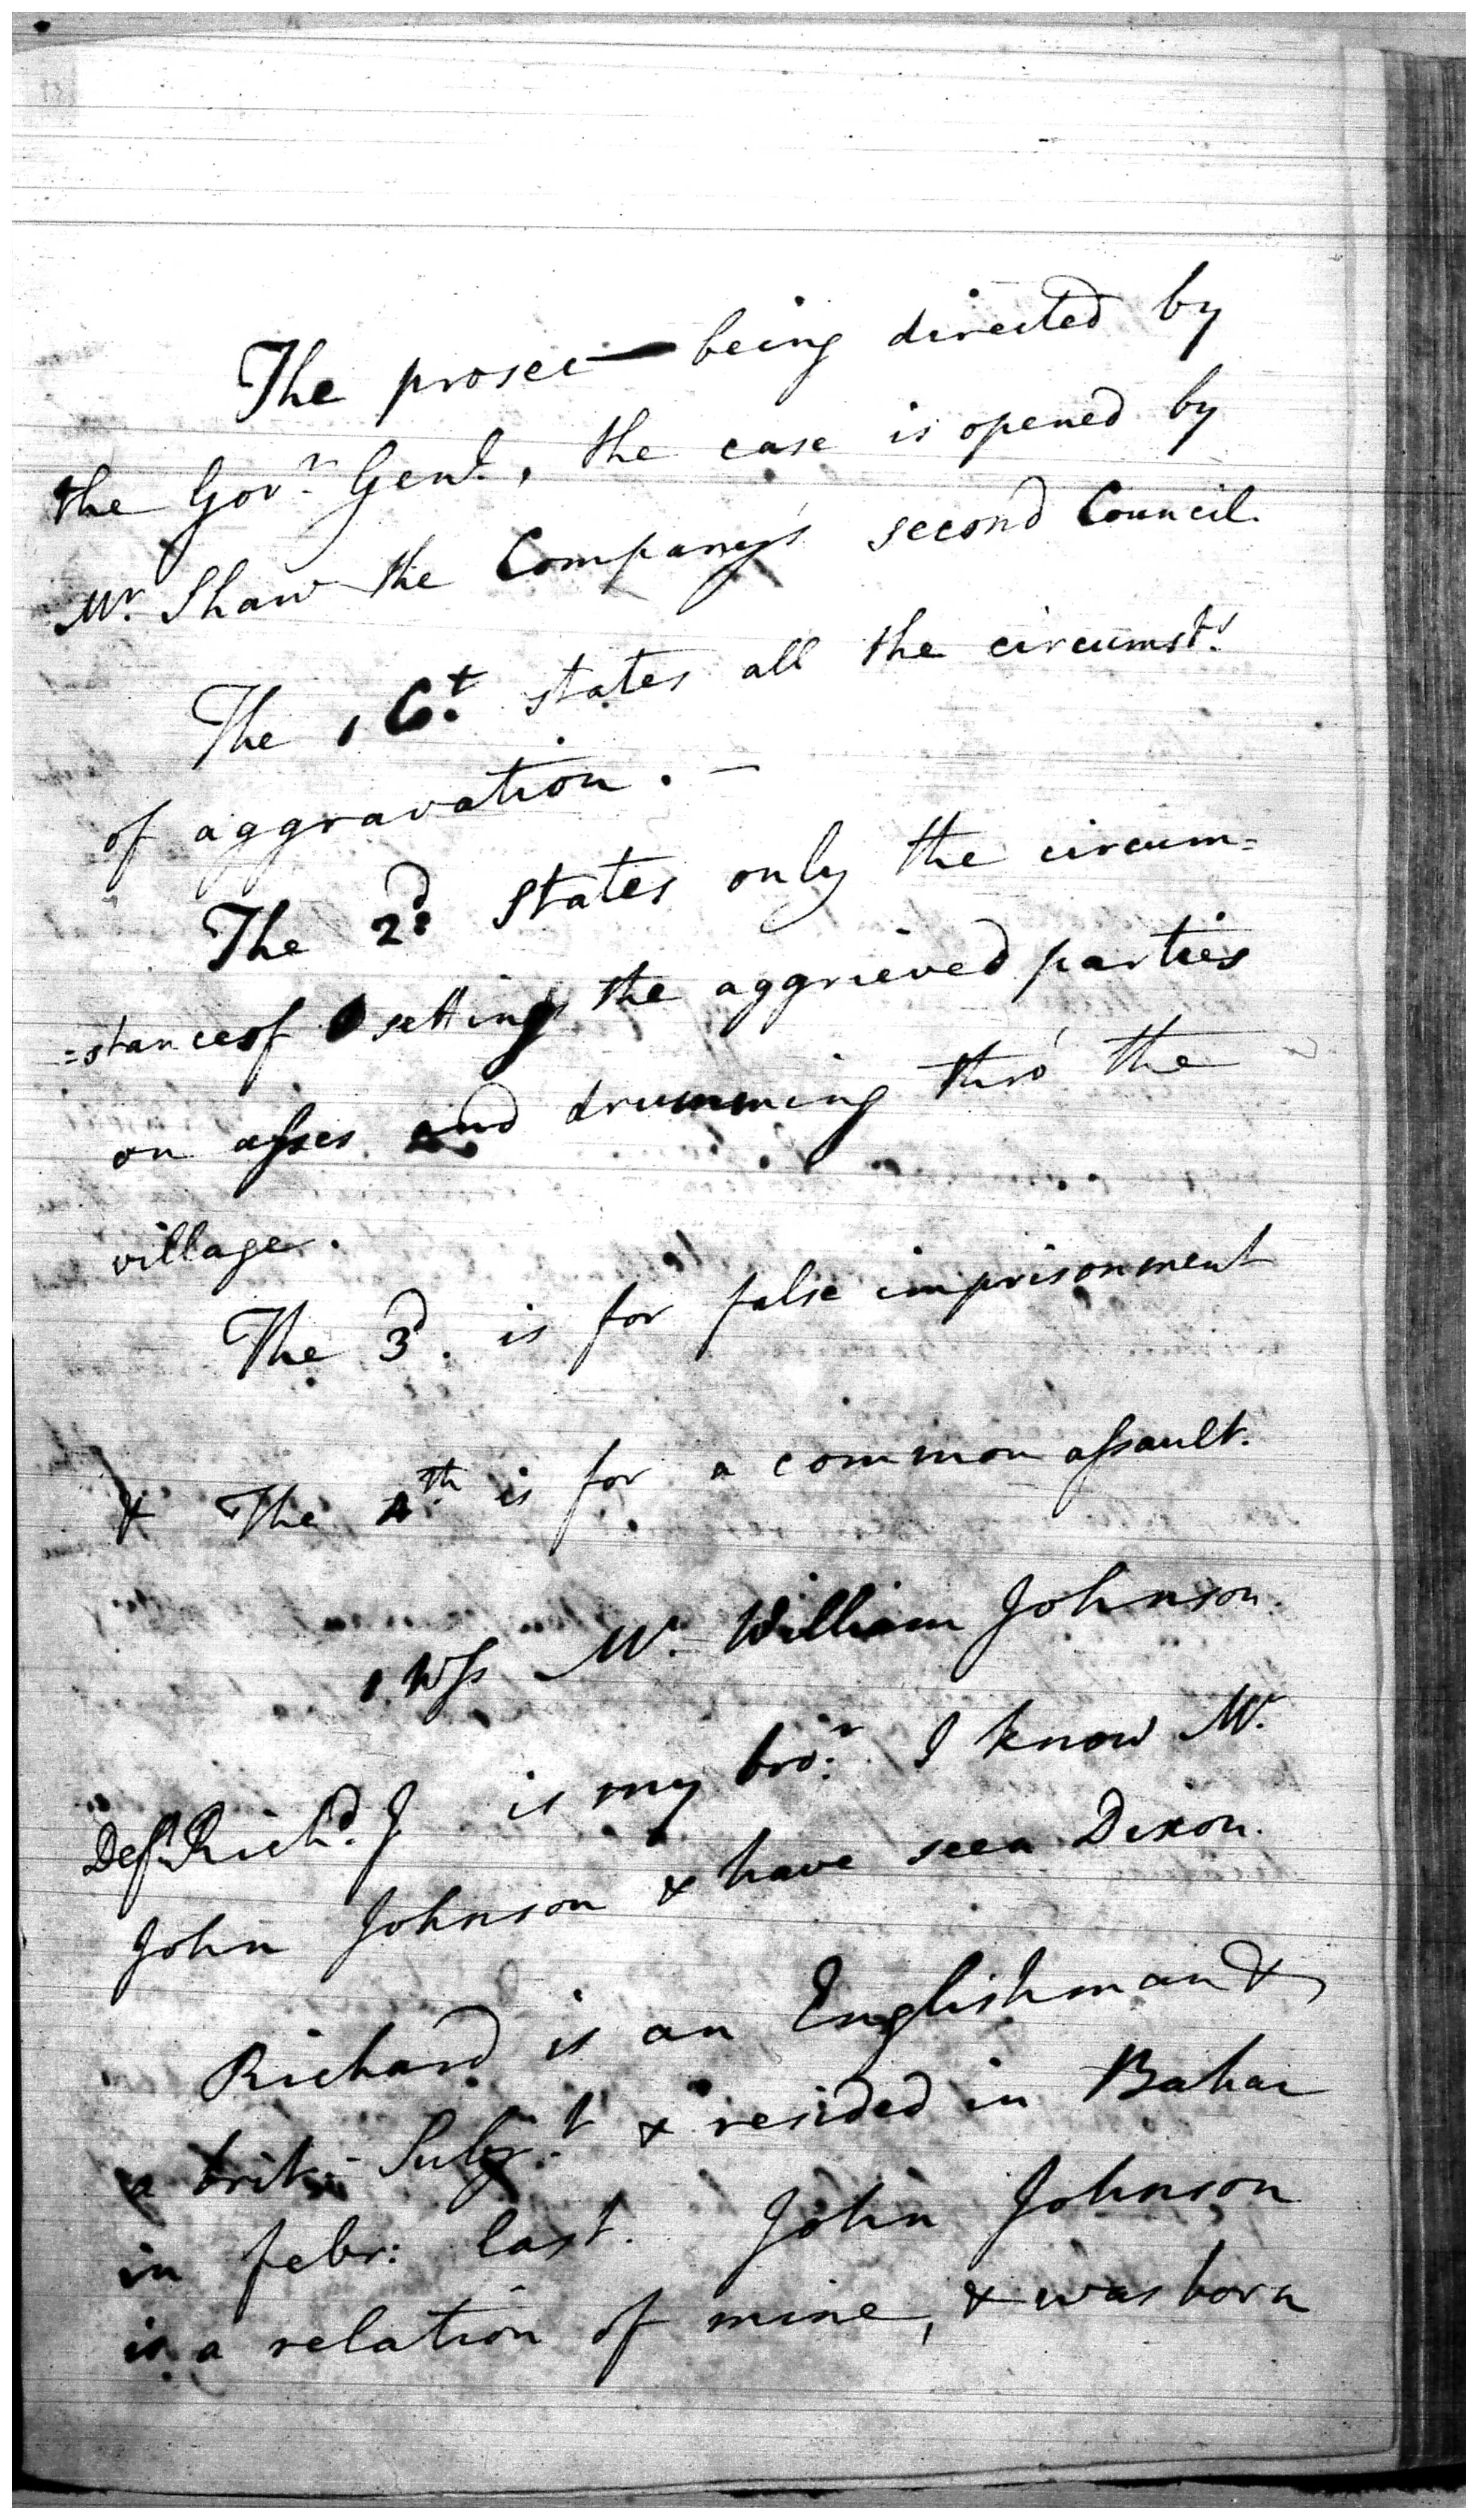 The prosec— being directed by
the Govr. Genl., the case is opened by
Mr. Shaw the Company's second Council.
The 1 Ct. states all the circumsts.
of aggravation. —
The 2d. States only the circum=
=stance of setting the aggrieved parties
on asses and drumming thro' the
village.
The 3d. is for false imprisonment
& The 4th. is for a common assault.
1. Wss Mr. William Johnson.
Deft. Richd. J is my bror. I know Mr.
John Johnson & have seen Dixon.
Richard is an Englishman &
a brit: Subjt. & resided in Bahar
in febr: last. John Johnson
is a relation of mine, & was born